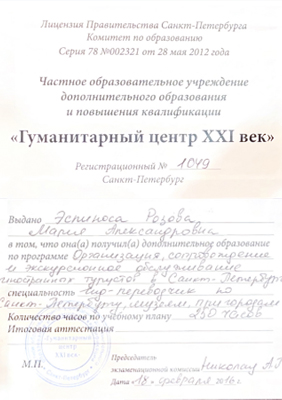 Лицензия Правительства Санкт-Петербурга
Комитет по образованию
Серия 78 №002321 от 28 мая 2012 года
Частное образовательное учреждение
дополнительного образования
и повышения квалификации
«Гуманитарный центр XXI век»
Регистрационный № 1049
Санкт-Петербург
Выдано Эспиноса Розова
Мария Александровна
в том, что она(а) получил(а) дополнительное образование
по программе Организация, сопровождение
и экскурсионное обслуживание
иностранных туристов в Санкт-Петербурге
специальность гид-переводчик по
Санкт-Петербургу, музеям, пригородам
Количество часов по учебному плану 250 часов
Итоговая аттестация
Гуманитарный
центр
XXI век
М.П.
Председатель
экзаменационной комиссии Николай А.
Дата 18 февраля 2016 г.